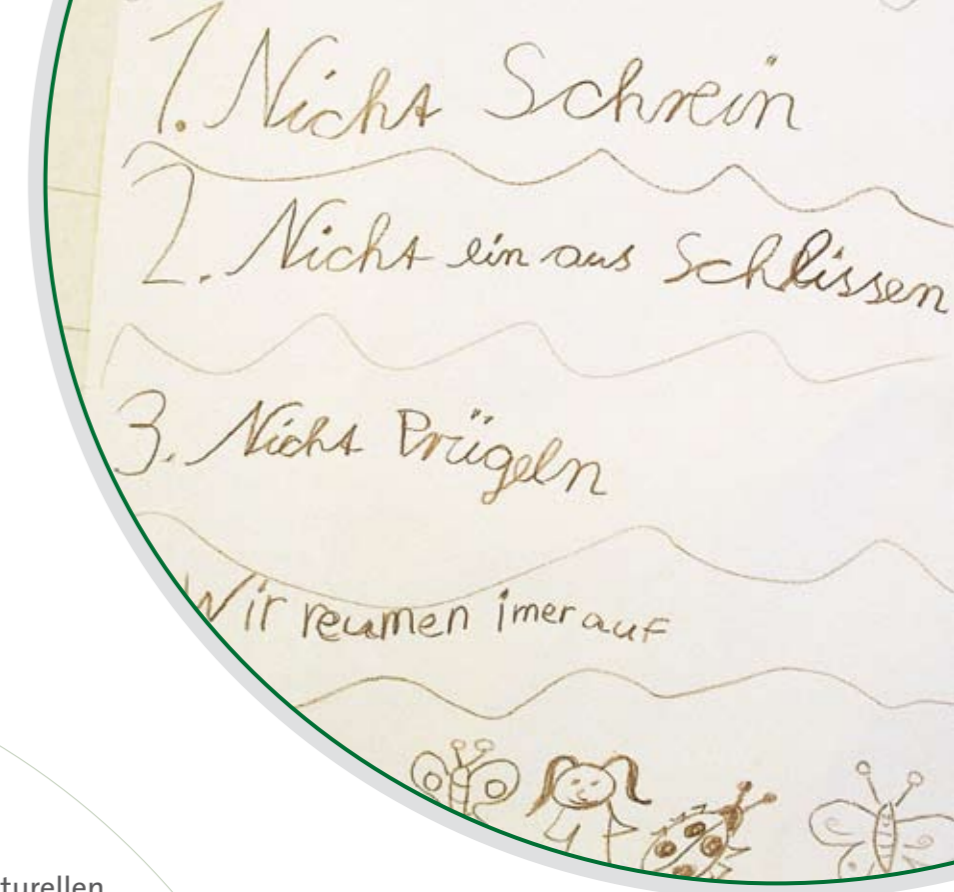 1. Nicht Schrein
2. Nicht ein aus Schlissen
3. Nicht Prügeln
Wir reumen imer auf
turellen